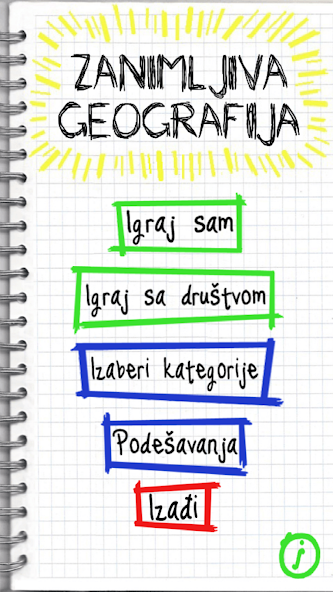 ZANIMLJIVA
GEOGRAFIJA
Igraj sam
Igraj sa društvom
Izaberi kategorije
Podešavanja
Izađi
i